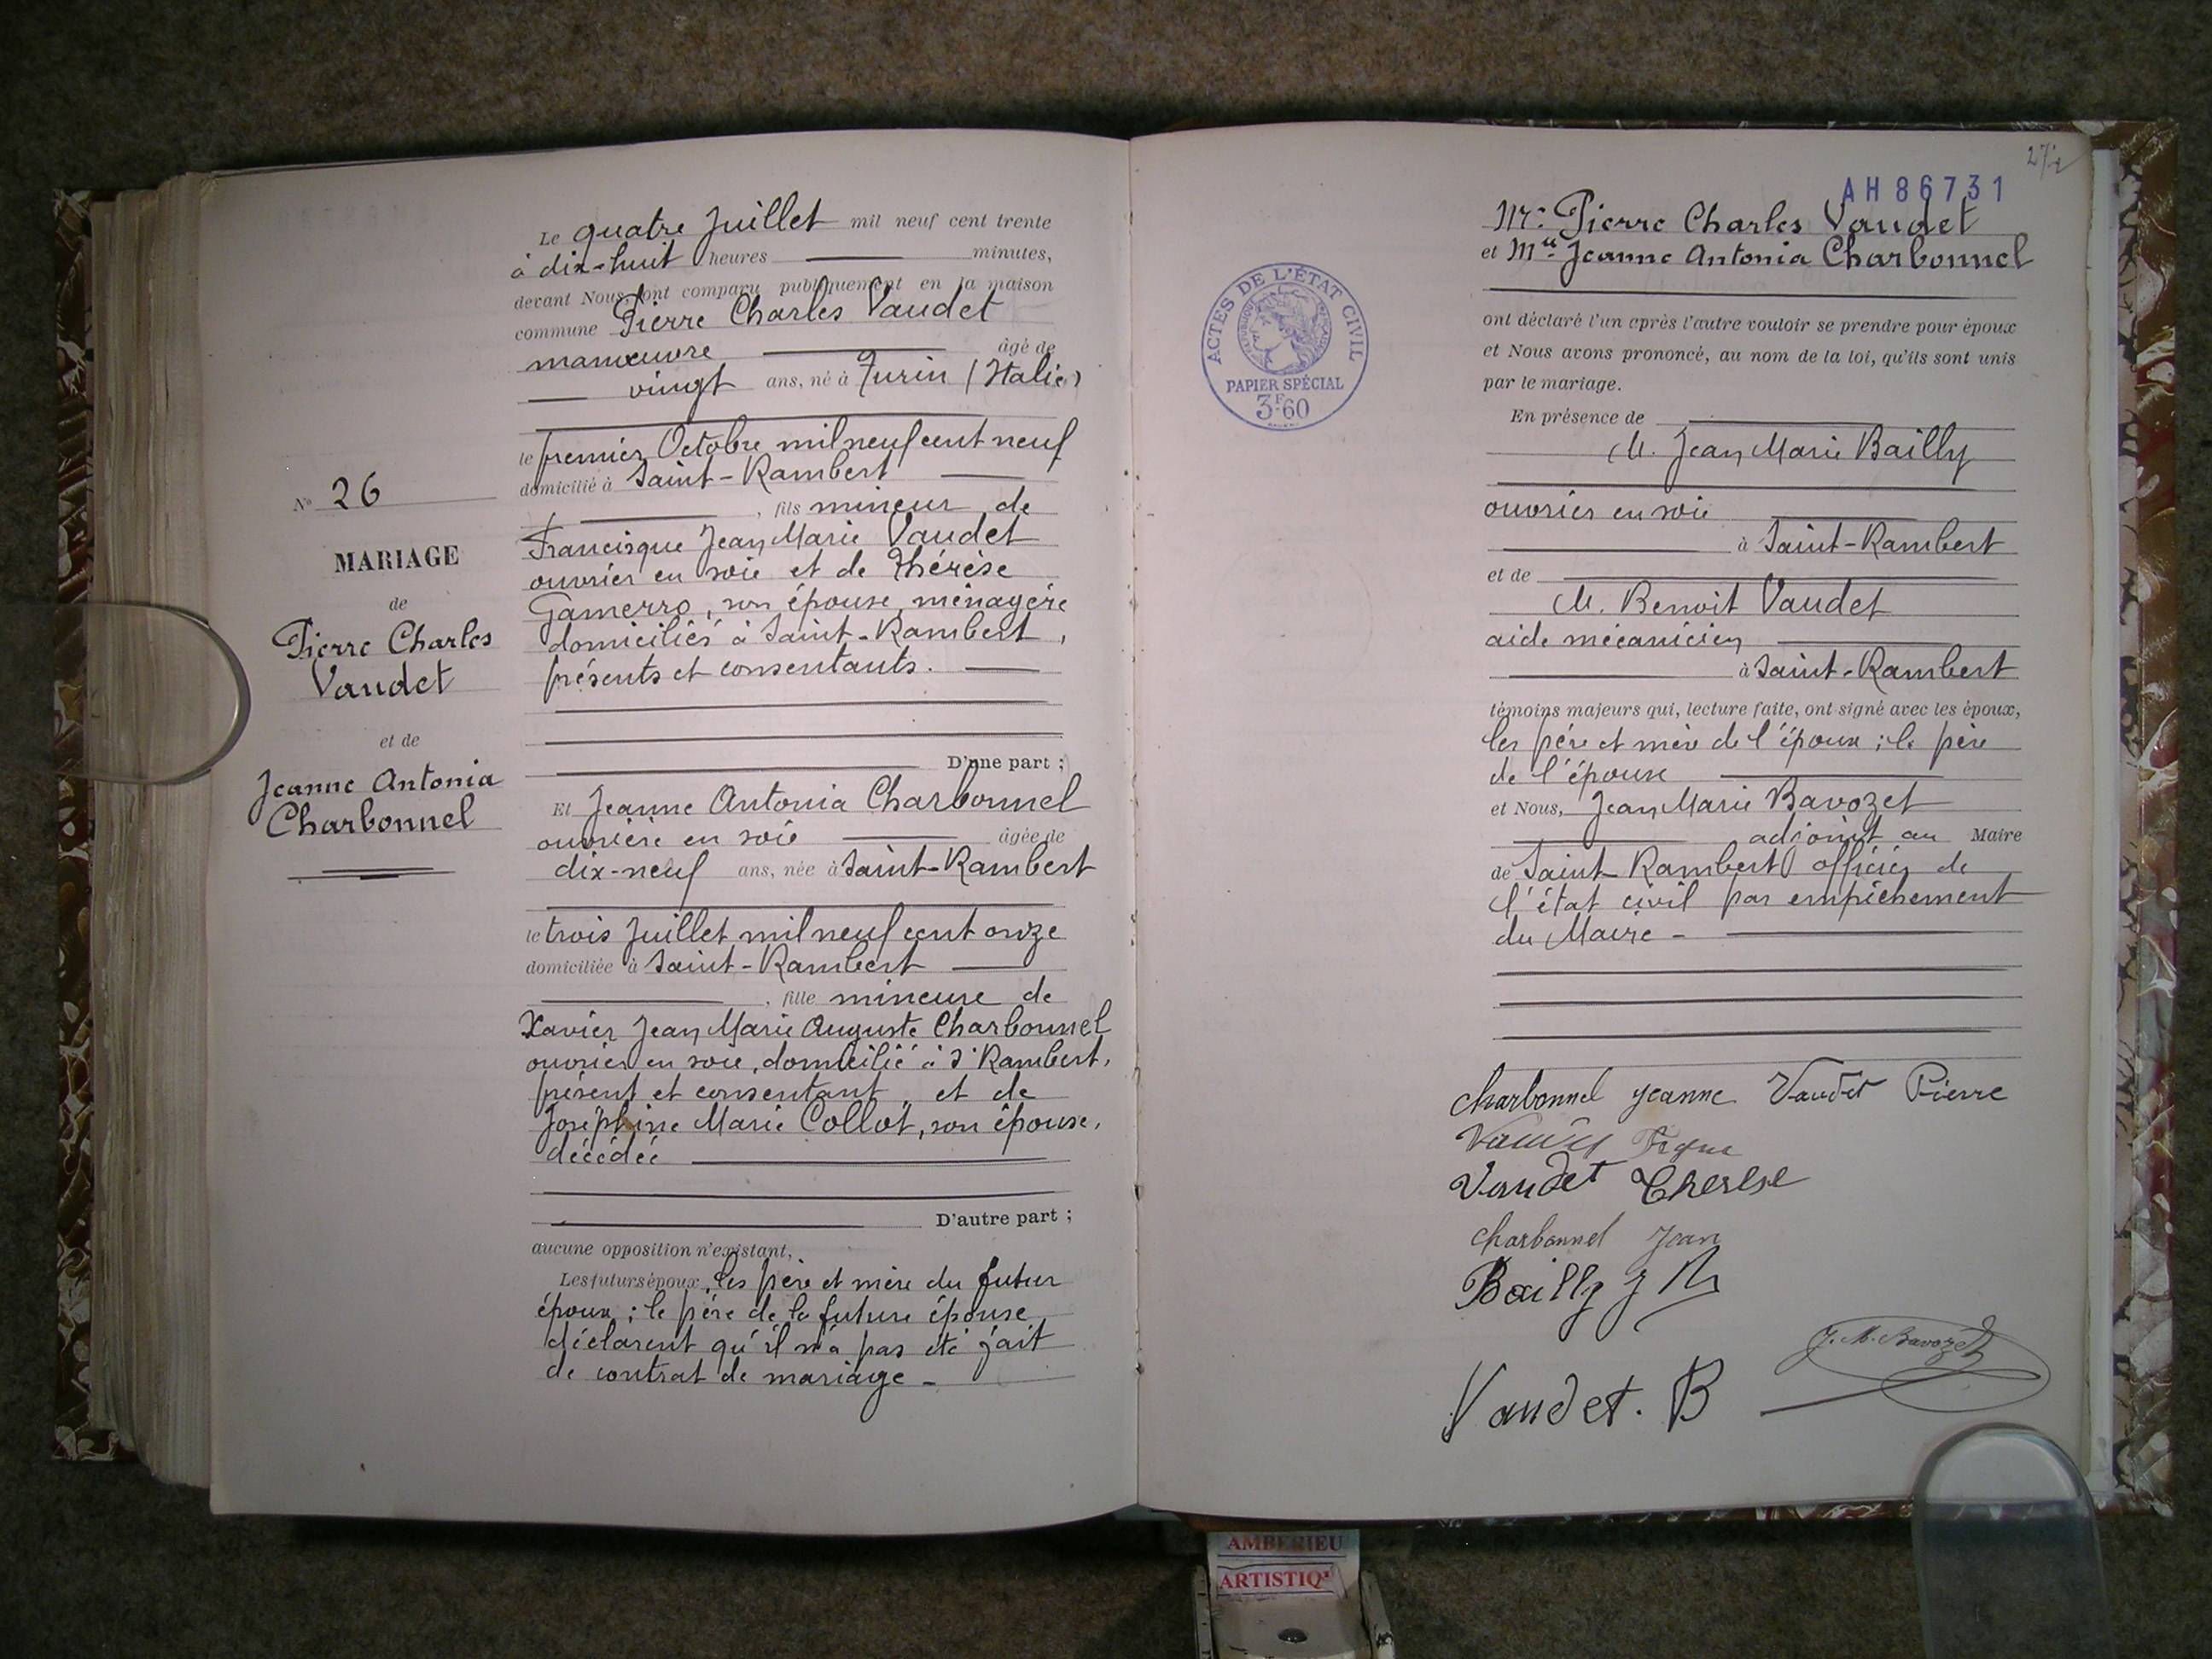 Le quatre Juillet mil neuf cent trente
à dix-huit heures minutes,
devant Nous ont comparu publiquement en la maison
commune Pierre Charles Vaudet
manœuvre âgé de
vingt ans, né à Turin (Italie)
le premier Octobre mil neuf cent neuf
domicilié à Saint-Rambert
, fils mineur de
Francisque Jean Marie Vaudet
ouvrier en soie et de Thérèse
Gamerro, son épouse, ménagère
domiciliés à Saint-Rambert,
présents et consentants.
D'une part ;
Et Jeanne Antonia Charbonnel
ouvrière en soie âgée de
dix-neuf ans, née à Saint-Rambert
le trois Juillet mil neuf cent onze
domiciliée à Saint-Rambert
, fille mineure de
Xavier Jean Marie Auguste Charbonnel
ouvrier en soie, domicilié à St Rambert,
présent et consentant, et de
Joséphine Marie Collot, son épouse,
décédée
D'autre part ;
aucune opposition n'existant,
Les futurs époux, les père et mère du futur
époux ; le père de la future épouse
déclarent qu'il n'a pas été fait
de contrat de mariage -
N° 26
MARIAGE
de
Pierre Charles
Vaudet
et de
Jeanne Antonia
Charbonnel
AH 86731
Mr. Pierre Charles Vaudet
et Mlle Jeanne Antonia Charbonnel
ont déclaré l'un après l'autre vouloir se prendre pour époux
et Nous avons prononcé, au nom de la loi, qu'ils sont unis
par le mariage.
En présence de
M. Jean Marie Bailly
ouvrier en soie
à Saint-Rambert
et de
M. Benoit Vaudet
aide mécanicien
à Saint-Rambert
témoins majeurs qui, lecture faite, ont signé avec les époux,
les père et mère de l'époux ; le père
de l'épouse
et Nous, Jean Marie Bavozet
adjoint au Maire
de Saint-Rambert officier de
l'état civil par empêchement
du Maire -
charbonnel jeanne Vaudet Pierre
Vaudet Fsque
Vaudet Therese
charbonnel Jean
Bailly J M
J. M. Bavozet
Vaudet. B
ACTES DE L'ÉTAT CIVIL
RÉPUBLIQUE FRANÇAISE
PAPIER SPÉCIAL
3F.60
AMBERIEU
ARTISTIQ